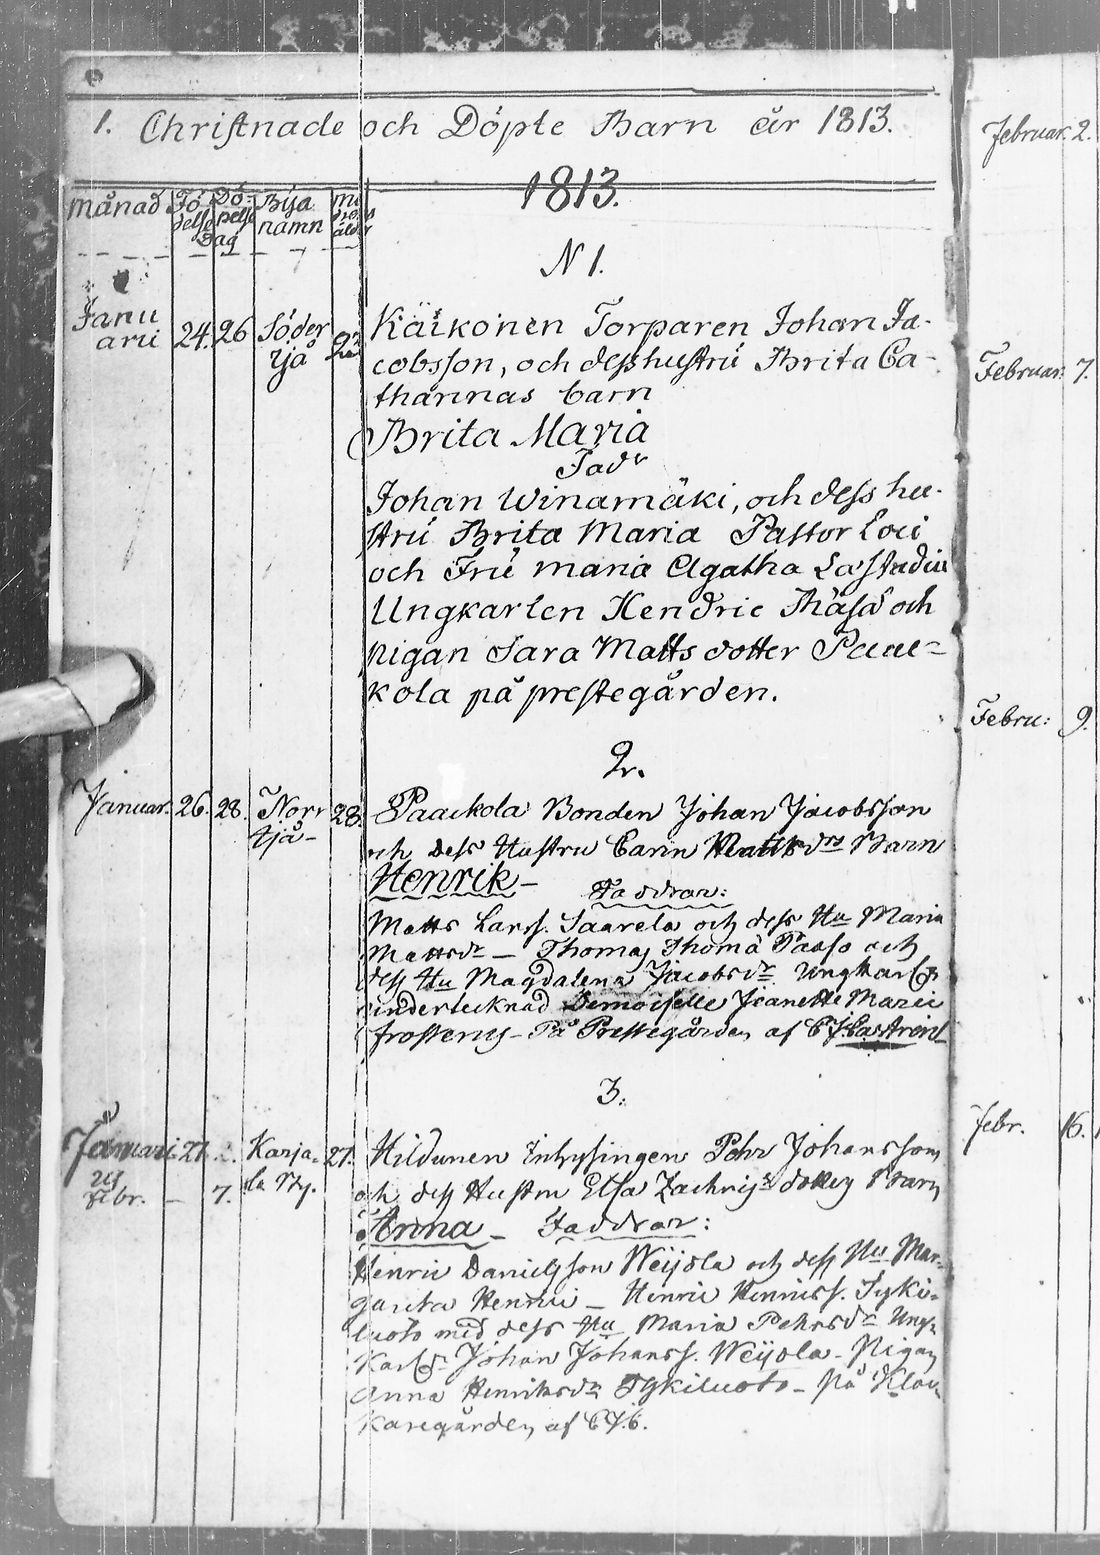 1. Christnade och Döpte Barn år 1813.
1813.
Månad Fö delse Dö pelse Dag Bya namn
N 1.
Janu arii 24. 26 Söder yså
Käikönen Torparen Johan Ja-
cobsson, och dess hustru Brita Ca-
tharinas barn
Brita Maria
Fadr
Johan Winamäki, och dess hu-
stru Brita Maria Pastor Loci
och Fru Maria Agatha Lastadia
Ungkarlen Hendric Thäsä och
pigan Sara Matts dotter Paac-
kola på prestegården.
2.
Januar. 26. 28. Norr 28.
Paackola Bonden Johan Jacobsson
och dess Hustru Carin Matts drs Barn
Henrik - Faddrar:
Matts Larss. Saarela och dess Hu Maria
Mattsdr - Thomas Thomä Paaso och
dess Hu Magdalena Jacobsdr Ungkarl
undertecknad Demoiselle Jeanette Marie
Frosterus - På Prestegården af C J. Castrén
3.
Januari 27. Karja- la By. 27.
Febr. - 7.
Hildunen Inhysingen Pehr Johansson
och dess Hustru Elsa Zachris dotters Barn
Anna - Faddrar:
Henric Danielsson Weijola och dess Hu Mar-
gareta Henrici - Henric Henricss. Tyki-
luoto med dess Hu Maria Pehrsdr Ung-
Karl Johan Johanss. Weijola - Pigan
Anna Henriksdr Tykiluoto - på Kloc-
karegården af C J. C.
Februar. 2.
Februar. 7.
Febru: 9.
Febr. 16.